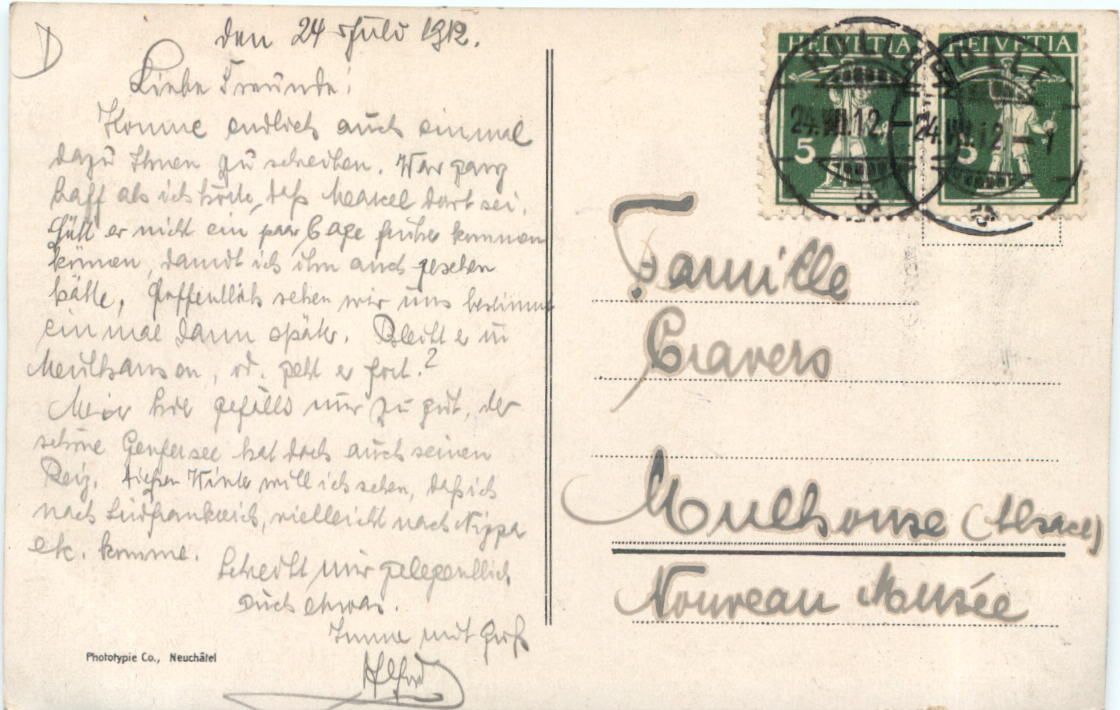 den 24 Juli 1912.
Liebe Freunde!
Komme endlich auch einmal
dazu Ihnen zu schreiben. War ganz
baff als ich hörte, daß Marcel dort sei.
Hätt er nicht ein paar Tage früher kommen
können, damit ich ihn auch gesehen
hätte, hoffentlich sehen wir uns bestimmt
einmal dann später. Bleibt er in
Meulhausen, od. geht er fort?
Mir hier gefällts nur zu gut, der
schöne Genfersee hat doch auch seinen
Reiz. diesen Winter will ich sehen, daß ich
nach Südfrankreich, vielleicht nach Nizza
etc. komme.
Schreibt mir gelegentlich
auch etwas.
Imme mit Gruß
Alfred
Phototypie Co., Neuchâtel
HELVETIA HELVETIA
ROLLE ROLLE
24.VII.12.- 24.VII.12.-1
5 5
Famille
Travers
Mulhouse (Alsace)
Nouveau Musée